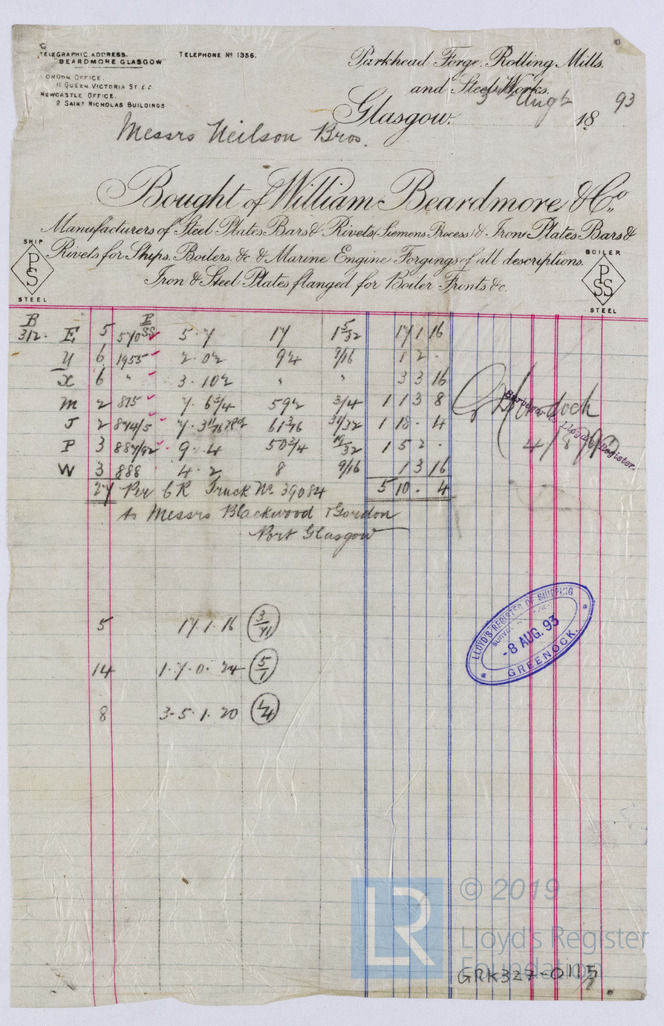 TELEGRAPHIC ADDRESS. TELEPHONE No 1356.
BEARDMORE GLASGOW
LONDON OFFICE.
11 QUEEN VICTORIA ST E.C
NEWCASTLE OFFICE.
2 SAINT NICHOLAS BUILDINGS
Parkhead Forge. Rolling Mills.
and Steel Works.
Glasgow. Augt 18 93
Messrs Neilson Bros.
Bought of William Beardmore & Co.
Manufacturers of Steel Plates Bars & Rivets (Siemens Process) & Iron Plates Bars &
Rivets for Ships. Boilers. &c & Marine Engine Forgings of all descriptions.
Iron & Steel Plates flanged for Boiler Fronts &c.
SHIP
PS
STEEL
BOILER
PSS
STEEL
B P
312. E 5 570 SS 5.7 17 1 5/32 17 1 16
Y 6 1955 2.02 9 1/2 9/16 1 2 .
X 6 " 3.10 1/2 " " 3 3 16
M 2 815 7.6 3/4 59 1/2 3/4 1 1 3 8
J 2 874/5 61 3/16 31/32 1 18 . 4
P 3 887/92 9.4 50 3/4 19/32 1 5 2 .
W 3 888 4.2 8 9/16 1 3 16
27 Per C R Truck No 39084 5 10 . 4
to Messrs Blackwood & Gordon
Port Glasgow
4/8/93
Surveyor to Lloyd's Register.
5 17.1.16 3/71
14 1.7.0.24 5/1
8 3.5.1.20 1/4
LLOYD'S REGISTER OF SHIPPING
-8 AUG. 93
GREENOCK.
LR
© 2019
Lloyd's Register
Foundation
GRK327-0115